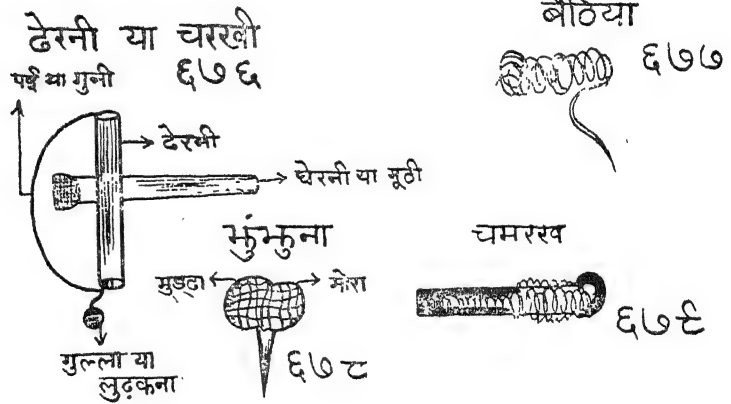 ढेरनी या चरखी
६७६
पईं या गुनी
ढेरनी
घेरनी या मूठी
गुल्ला या
लुढ़कना
बैठिया
६७७
झुंझुना
मुड्ढा
मोरा
६७८
चमरख
६७९